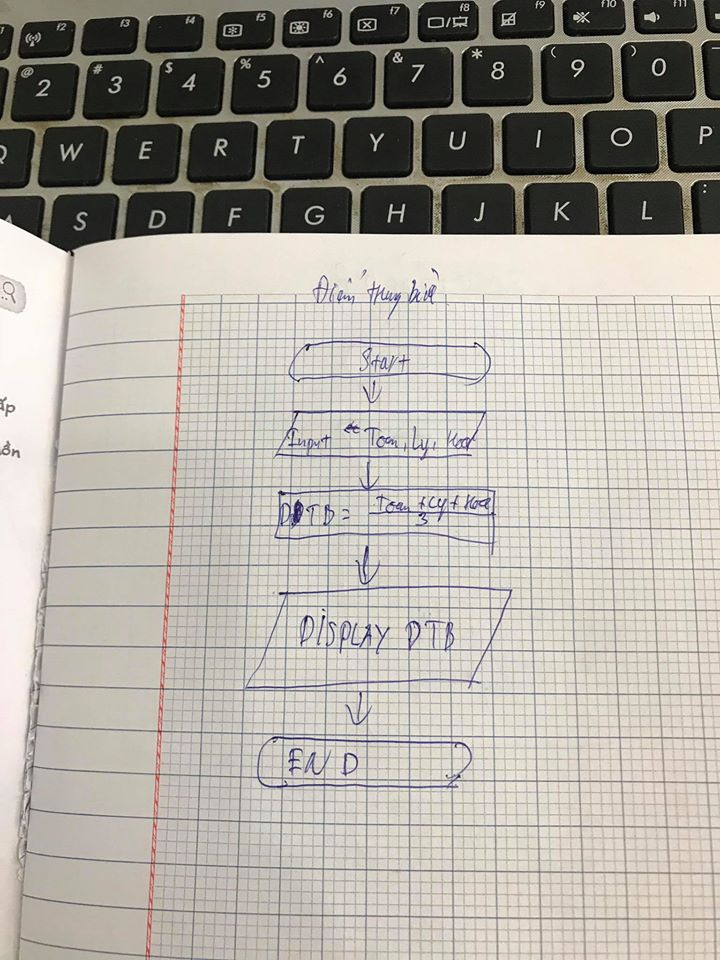 f2 f3 f4 f5 f6 f7 f8 f9 f10 f11
@ 2 # 3 $ 4 % 5 ^ 6 & 7 * 8 ( 9 ) 0
Q W E R T Y U I O P
A S D F G H J K L :
ấp
Điểm trung bình
Start
Input Toan, Ly, Hoa
DTB = Toan + Ly + Hoa
3
DISPLAY DTB
END